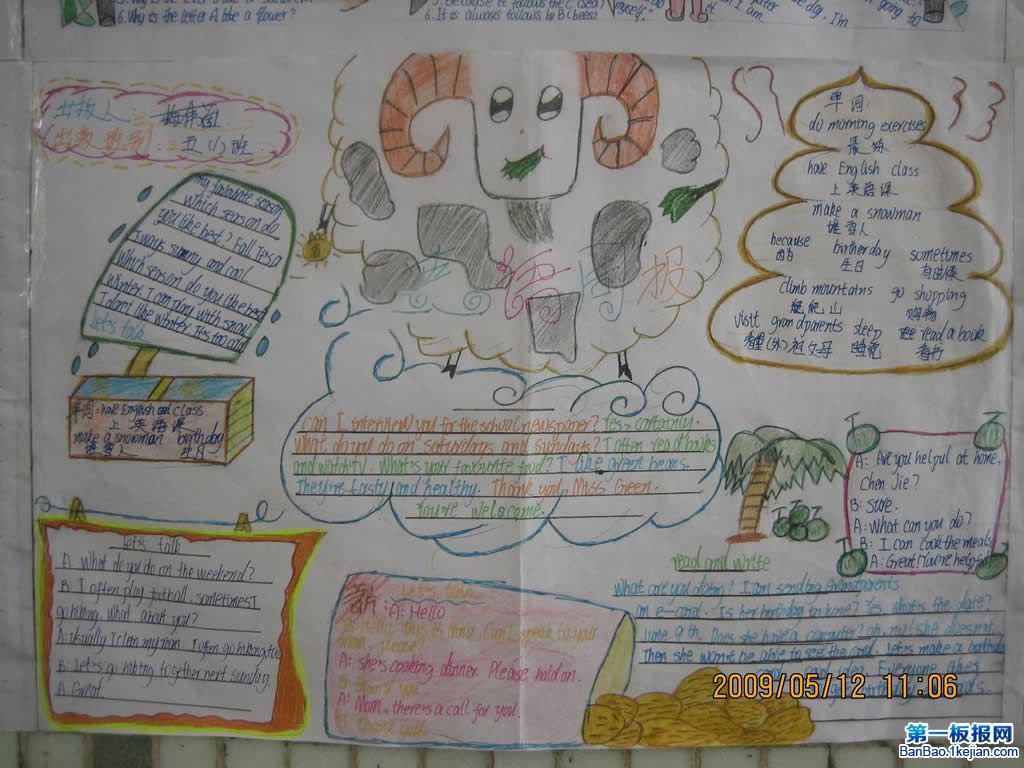 6. Why is the letter A like a flower?
6. It is always follows by B(bees)
I am.
going to
出报人:
出报班别: 五(1)班
my favourite season
which season do
you like best? Fall. It's a
lways sunny and cool.
Which season do you like best
Winter. I can play with snow.
I don't like winter. It's too cold
Let's talk
单词: have English class
上英语课
make a snowman birthday
堆雪人 生日
英语周报
单词:
do morning exercises
晨练
have English class
上英语课
make a snowman
堆雪人
because birtherday sometimes
因为 生日 有时候
climb mountains go shopping
爬山 购物
visit grandparents sleep read a book
看望(外)祖父母 睡觉 看书
Can I interview you for the school newspaper? Yes, certainly.
What do you do on saturdays and sundays? I often read books
and watch TV. What's your favourite food? I like green beans.
They're tasty and healthy. Thank you, Miss Green.
You're welcome.
A: Are you helpul at home,
Chen Jie?
B: sure.
A: What can you do?
B: I can cook the meals
A: Great! You're helpful
let's talk
A: What do you do on the weekend?
B: I often play football. sometimes I
go hiking. What about you?
A: usually I clean my room. I often go hiking, too
B: Let's go hiking together next sunday.
A: Great.
Let's talk
A: Hello
Hello, this is Can I speak to your
mom, please?
A: she's cooking dinner. Please hold on.
A: Mom, there's a call for you.
B: Thank you
read and write
What are you doing? I am sending Grandparents
an e-card. Is her birthday in June? Yes. What's the date?
June 9th. Does she have a computer? oh, no! she does not.
Then she won't be able to see the card. Let's make a birthday
card. good idea. Everyone likes
2009/05/12 11:06
第一板报网
BanBao.1kejian.com